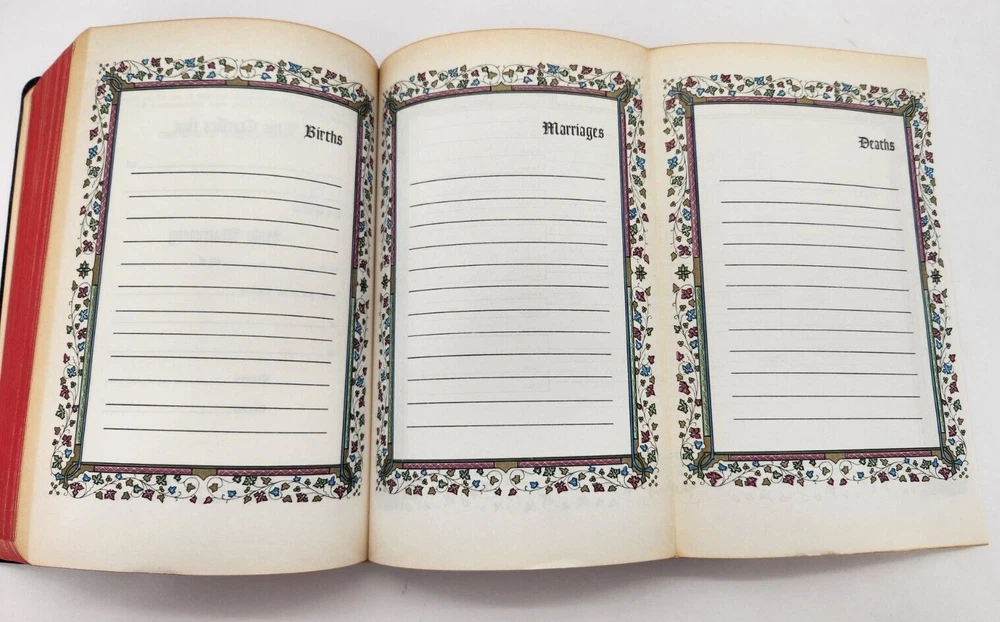 Births
Marriages
Deaths